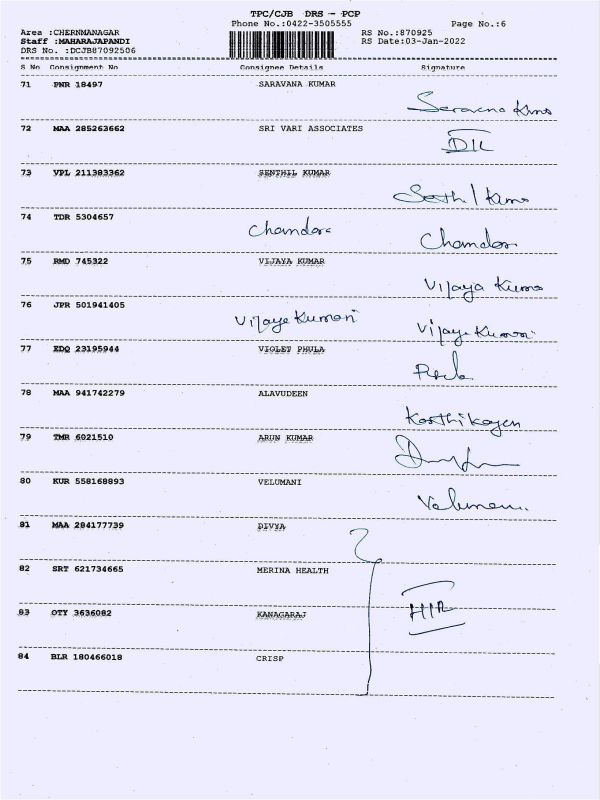 TPC/CJB DRS - PCP
Phone No.:0422-3505555 Page No.:6
Area :CHERNMANAGAR RS No.:870925
Staff :MAHARAJAPANDI RS Date:03-Jan-2022
DRS No. :DCJB87092506
S No Consignment No Consignee Details Signature
71 PNR 18497 SARAVANA KUMAR
Saravana Kumar
72 MAA 285263662 SRI VARI ASSOCIATES
73 VPL 211383362 SENTHIL KUMAR
74 TDR 5304657
Chandora Chandora
75 RMD 745322 VIJAYA KUMAR
Vijaya Kumar
76 JPR 501941405
Vijaye Kumari Vijaye Kumari
77 EDQ 23195944 VIOLET PHULA
78 MAA 941742279 ALAVUDEEN
Karthikeyen
79 TMR 6021510 ARUN KUMAR
80 KUR 558168893 VELUMANI
Velumani
81 MAA 284177739 DIVYA
82 SRT 621734665 MERINA HEALTH
83 OTY 3636082 KANAGARAJ
84 BLR 180466018 CRISP